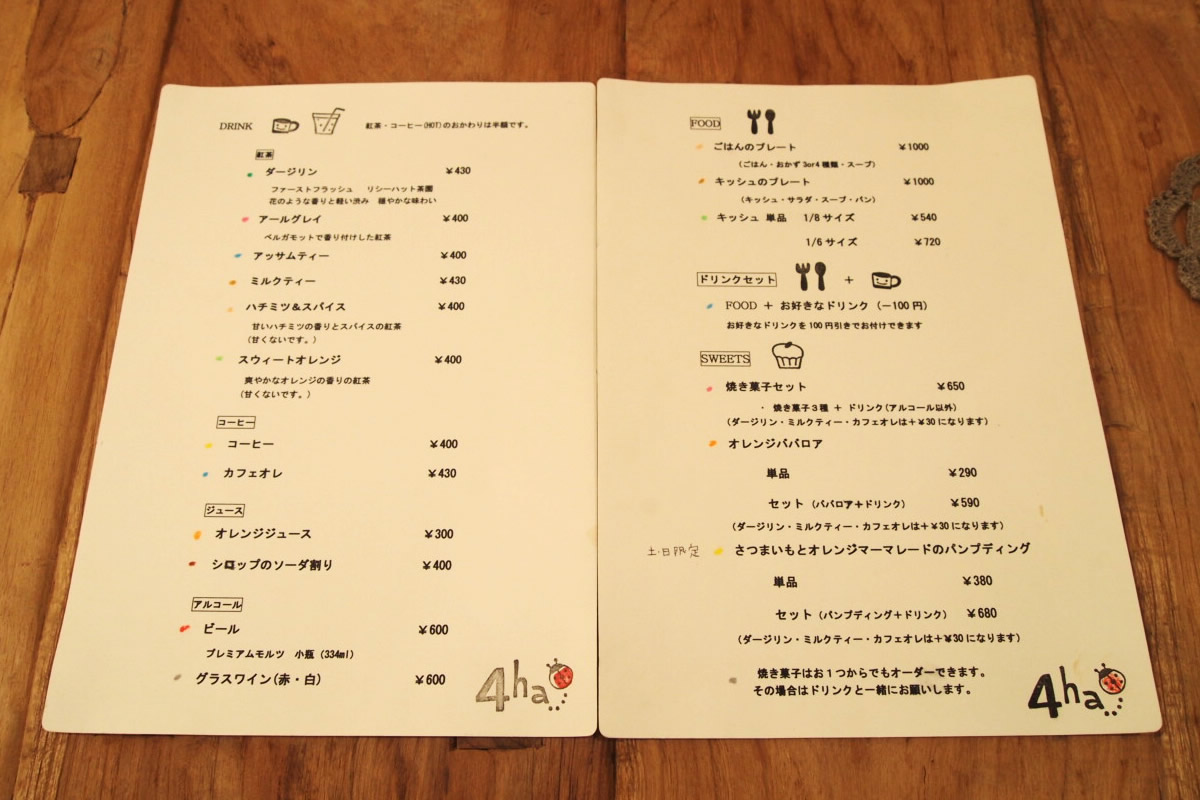 DRINK
紅茶・コーヒー(HOT)のおかわりは半額です。
紅茶
ダージリン ￥430
ファーストフラッシュ リシーハット茶園
花のような香りと軽い渋み 穏やかな味わい
アールグレイ ￥400
ベルガモットで香り付けした紅茶
アッサムティー ￥400
ミルクティー ￥430
ハチミツ＆スパイス ￥400
甘いハチミツの香りとスパイスの紅茶
(甘くないです。)
スウィートオレンジ ￥400
爽やかなオレンジの香りの紅茶
(甘くないです。)
コーヒー
コーヒー ￥400
カフェオレ ￥430
ジュース
オレンジジュース ￥300
シロップのソーダ割り ￥400
アルコール
ビール ￥600
プレミアムモルツ 小瓶 (334ml)
グラスワイン(赤・白) ￥600
4ha
FOOD
ごはんのプレート ￥1000
(ごはん・おかず3or4種類・スープ)
キッシュのプレート ￥1000
(キッシュ・サラダ・スープ・パン)
キッシュ 単品 1/8サイズ ￥540
1/6サイズ ￥720
ドリンクセット +
FOOD + お好きなドリンク (－100円)
お好きなドリンクを100円引きでお付けできます
SWEETS
焼き菓子セット ￥650
・ 焼き菓子３種 + ドリンク(アルコール以外)
(ダージリン・ミルクティー・カフェオレは＋￥30になります)
オレンジババロア
単品 ￥290
セット (ババロア+ドリンク) ￥590
(ダージリン・ミルクティー・カフェオレは＋￥30になります)
土・日限定 さつまいもとオレンジマーマレードのパンプディング
単品 ￥380
セット (パンプディング＋ドリンク) ￥680
(ダージリン・ミルクティー・カフェオレは＋￥30になります)
焼き菓子はお１つからでもオーダーできます。
その場合はドリンクと一緒にお願いします。
4ha